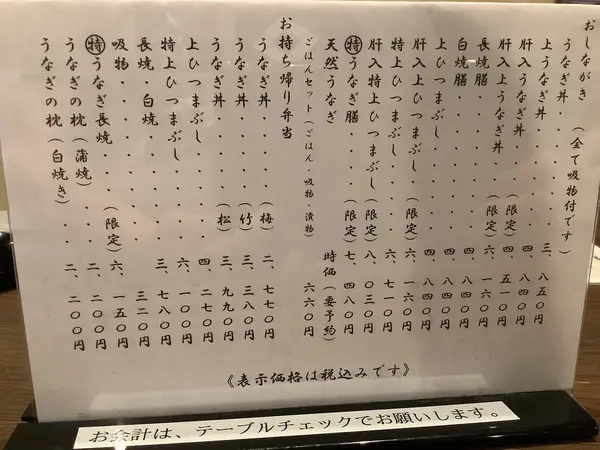 おしながき（全て吸物付です）
うなぎ丼・・・・・・三、八五〇円
上うなぎ丼・・・・・四、八四〇円
肝入うなぎ丼・・・・四、五一〇円
肝入上うなぎ丼（限定）六、一六〇円
長焼膳・・・・（限定）四、八四〇円
白焼膳・・・・・・・四、八四〇円
上ひつまぶし・・・・四、八四〇円
肝入上ひつまぶし（限定）六、一六〇円
特上ひつまぶし・・・六、七一〇円
肝入特上ひつまぶし（限定）八、〇三〇円
㊕うなぎ膳・・（限定）七、四八〇円
天然うなぎ 時価（要予約）
ごはんセット（ごはん・吸物・漬物） 六六〇円
お持ち帰り弁当
うなぎ丼・・・・（梅）二、七七〇円
うなぎ丼・・・・（竹）三、三八〇円
うなぎ丼・・・・（松）三、九九〇円
上ひつまぶし・・・・四、二七〇円
特上ひつまぶし・・・六、一〇〇円
長焼・白焼・・・・・三、七八〇円
吸物・・・・・・・・三二〇円
㊕うなぎ長焼・（限定）六、一五〇円
うなぎの枕（蒲焼）・・二、二〇〇円
うなぎの枕（白焼き）・・二、二〇〇円
《表示価格は税込みです》
お会計は、テーブルチェックでお願いします。